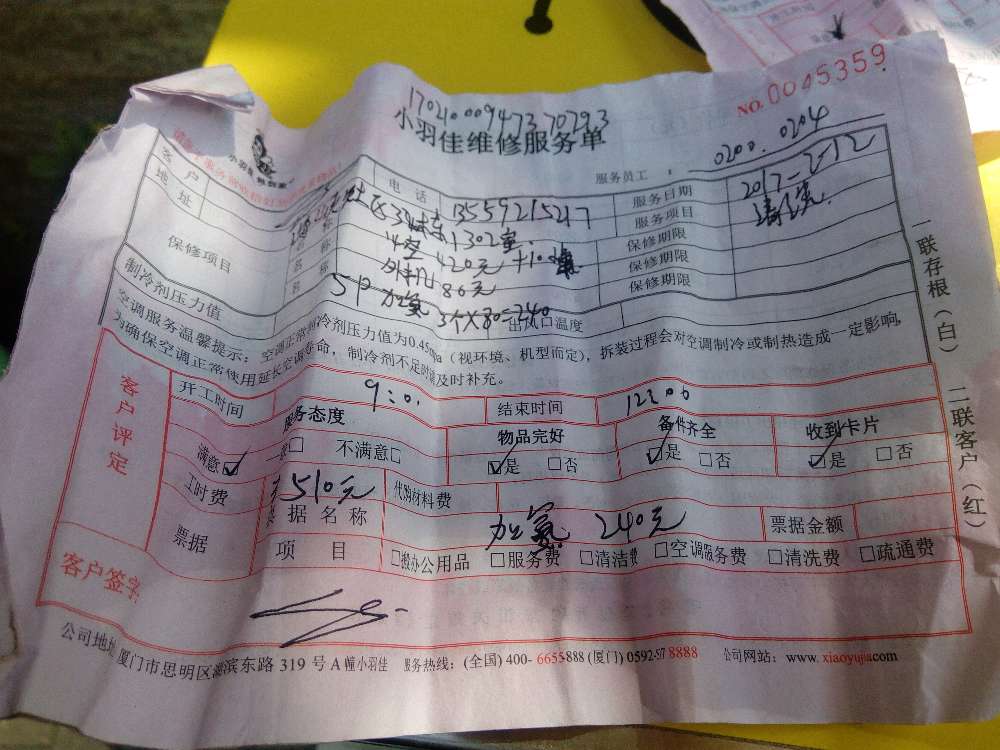 NO. 0045359
17021000947370293
小羽佳维修服务单
服务员工： 0200. 0204
客户 电话 13559215217 服务日期 2017-2-12
地址 1302室 服务项目 清洗
保修项目 名称 420元 保修期限
名称 外机 80元 保修期限
5P 加氟 3个×80=240 保修期限
制冷剂压力值 出风口温度
空调服务温馨提示：空调正常制冷剂压力值为0.45mpa（视环境、机型而定），拆装过程会对空调制冷或制热造成一定影响，
为确保空调正常使用延长空调寿命，制冷剂不足时请及时补充。
客户评定
开工时间 9:0 结束时间 12:06
服务态度 物品完好 备件齐全 收到卡片
满意 不满意□ 是 □否 是 □否 是 □否
工时费 510元 代购材料费
票据 票据名称 加氟 240元 票据金额
项目 □搬办公用品 □服务费 □清洁费 □空调服务费 □清洗费 □疏通费
客户签字
公司地址 厦门市思明区湖滨东路 319 号 A 幢小羽佳 服务热线：(全国) 400-6655-888 (厦门) 0592-5178888 公司网站：www.xiaoyujia.com
一联存根（白） 二联客户（红）